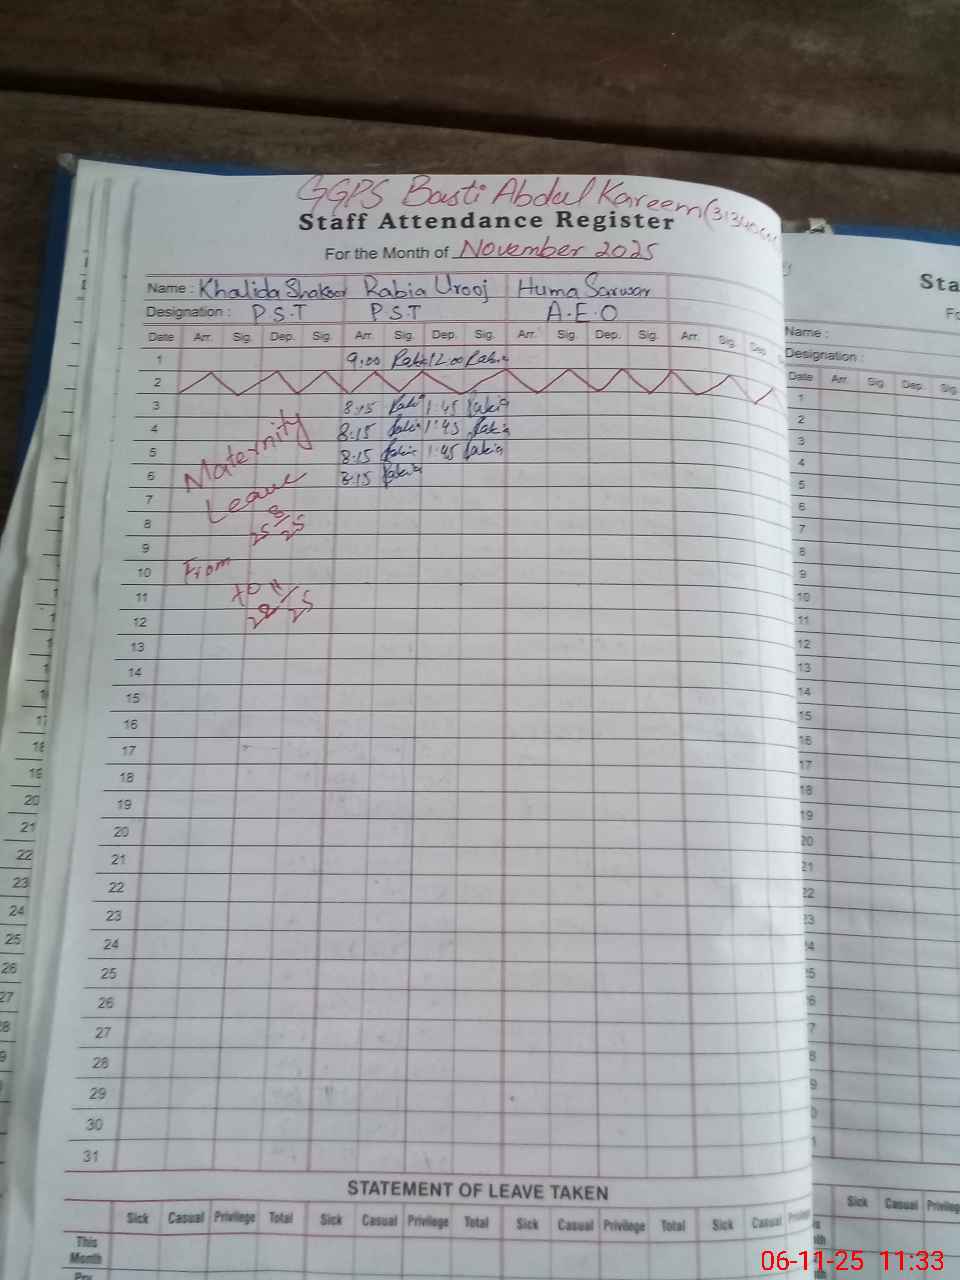 GGPS Basti Abdul Kareem
Staff Attendance Register
For the Month of November 2025
Name : Khalida Shakoor Rabia Urooj Huma Sarwar
Designation : P.S.T P.S.T A.E.O
Date Arr. Sig. Dep. Sig. Arr. Sig. Dep. Sig. Arr. Sig. Dep. Sig. Arr. Sig. Dep
1 9:00 Rabia 12:00 Rabia
2
3 8:15 Rabia 1:45 Rabia
4 8:15 Rabia 1:45 Rabia
5 8:15 Rabia 1:45 Rabia
6 8:15 Rabia
Maternity
7
Leave
8
25 8/25
9
From
10
11
to 28 11/25
12
13
14
15
16
17
18
19
20
21
22
23
24
25
26
27
28
29
30
31
STATEMENT OF LEAVE TAKEN
Sick Casual Privilege Total Sick Casual Privilege Total Sick Casual Privilege Total Sick Casual
This
Month
Sta
Name :
Designation :
Date Arr. Sig. Dep. Sig
1
2
3
4
5
6
7
8
9
10
11
12
13
14
15
16
17
18
19
20
21
22
23
24
Sick Casual Privilege
18
19
20
21
22
23
24
25
26
27
06-11-25 11:33